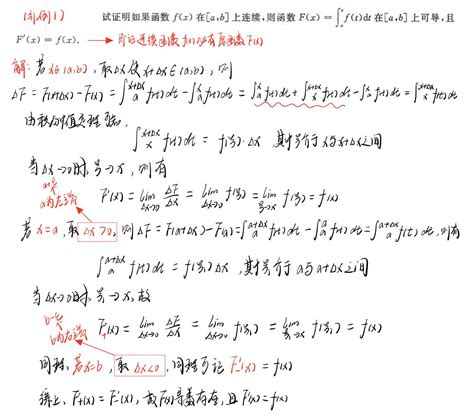 (引例1) 试证明如果函数 f(x) 在[a,b] 上连续,则函数 F(x)=∫ₐˣ f(t)dt 在[a,b] 上可导,且
F'(x)=f(x). → 即证连续函数 f(x) 必有原函数 F(x)
解: 若x∈(a,b), 取Δx使x+Δx∈(a,b), 则
ΔF=F(x+Δx)-F(x)=∫ₐ^{x+Δx} f(t)dt-∫ₐˣ f(t)dt=∫ₐˣ f(t)dt+∫ₓ^{x+Δx} f(t)dt-∫ₐˣ f(t)dt=∫ₓ^{x+Δx} f(t)dt
由积分中值定理知,
∫ₓ^{x+Δx} f(t)dt=f(ξ)·Δx, 其中ξ介于x与x+Δx之间
当Δx→0时, ξ→x, 则有
F'(x)=lim_{Δx→0} ΔF/Δx=lim_{Δx→0} f(ξ)=lim_{ξ→x} f(ξ)=f(x)
a为左端
若x=a, 取Δx>0, 则ΔF=F(a+Δx)-F(a)=∫ₐ^{a+Δx} f(t)dt-∫ₐᵃ f(t)dt=∫ₐ^{a+Δx} f(t)dt, 则有
∫ₐ^{a+Δx} f(t)dt=f(ξ)Δx, 其中ξ介于a与a+Δx之间
当Δx→0时, ξ→x, 故
b为右端
F₊'(x)=lim_{Δx→0} ΔF/Δx=lim_{Δx→0} f(ξ)=lim_{ξ→x} f(ξ)=f(x)
同理, 若x=b, 取Δx<0, 同理可证F₋'(x)=f(x)
综上, F₊'(x)=F₋'(x), 故F(x)导数存在, 且F'(x)=f(x)